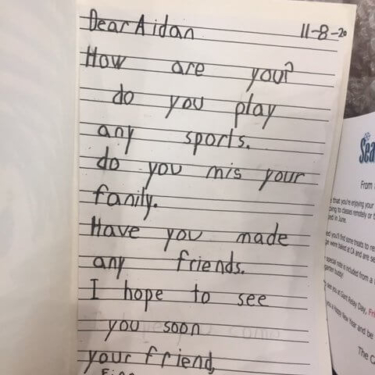 Dear Aidan 11-8-20
How are you?
do you play
any sports.
do you mis your
family.
Have you made
any friends.
I hope to see
you soon
your friend,
Sea
From
The C